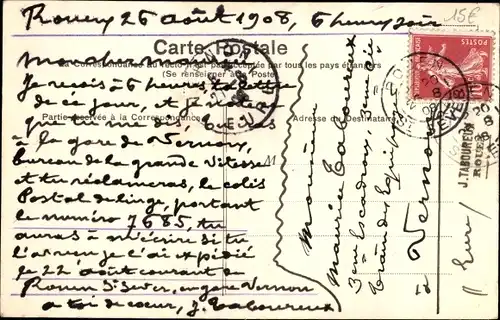 Rouen 26 août 1908, 6 heures soir
15€
Carte Postale
La Correspondance au recto n'est pas acceptée par tous les pays étrangers
(Se renseigner à la Poste)
Mon cher
Je reçois à 6 heures, ta lettre
de ce jour, et je
que tu me dis,
Partie réservée à la Correspondance
Adresse du Destinataire
à la gare de Vernon,
bureau de la grande vitesse
et tu réclameras, le colis
Postal de linge, portant
le numéro 7685, tu
auras à m'écrire si tu
l'as reçu je l'ai expédié
le 22 août courant de
Rouen St Sever, en gare Vernon
à toi de cœur, J. Taboureux
Monsieur
Maurice Taboureux
Escadron
Train des Equipages
à Vernon
Eure
POSTES
J. TABOUREUX
ROUEN